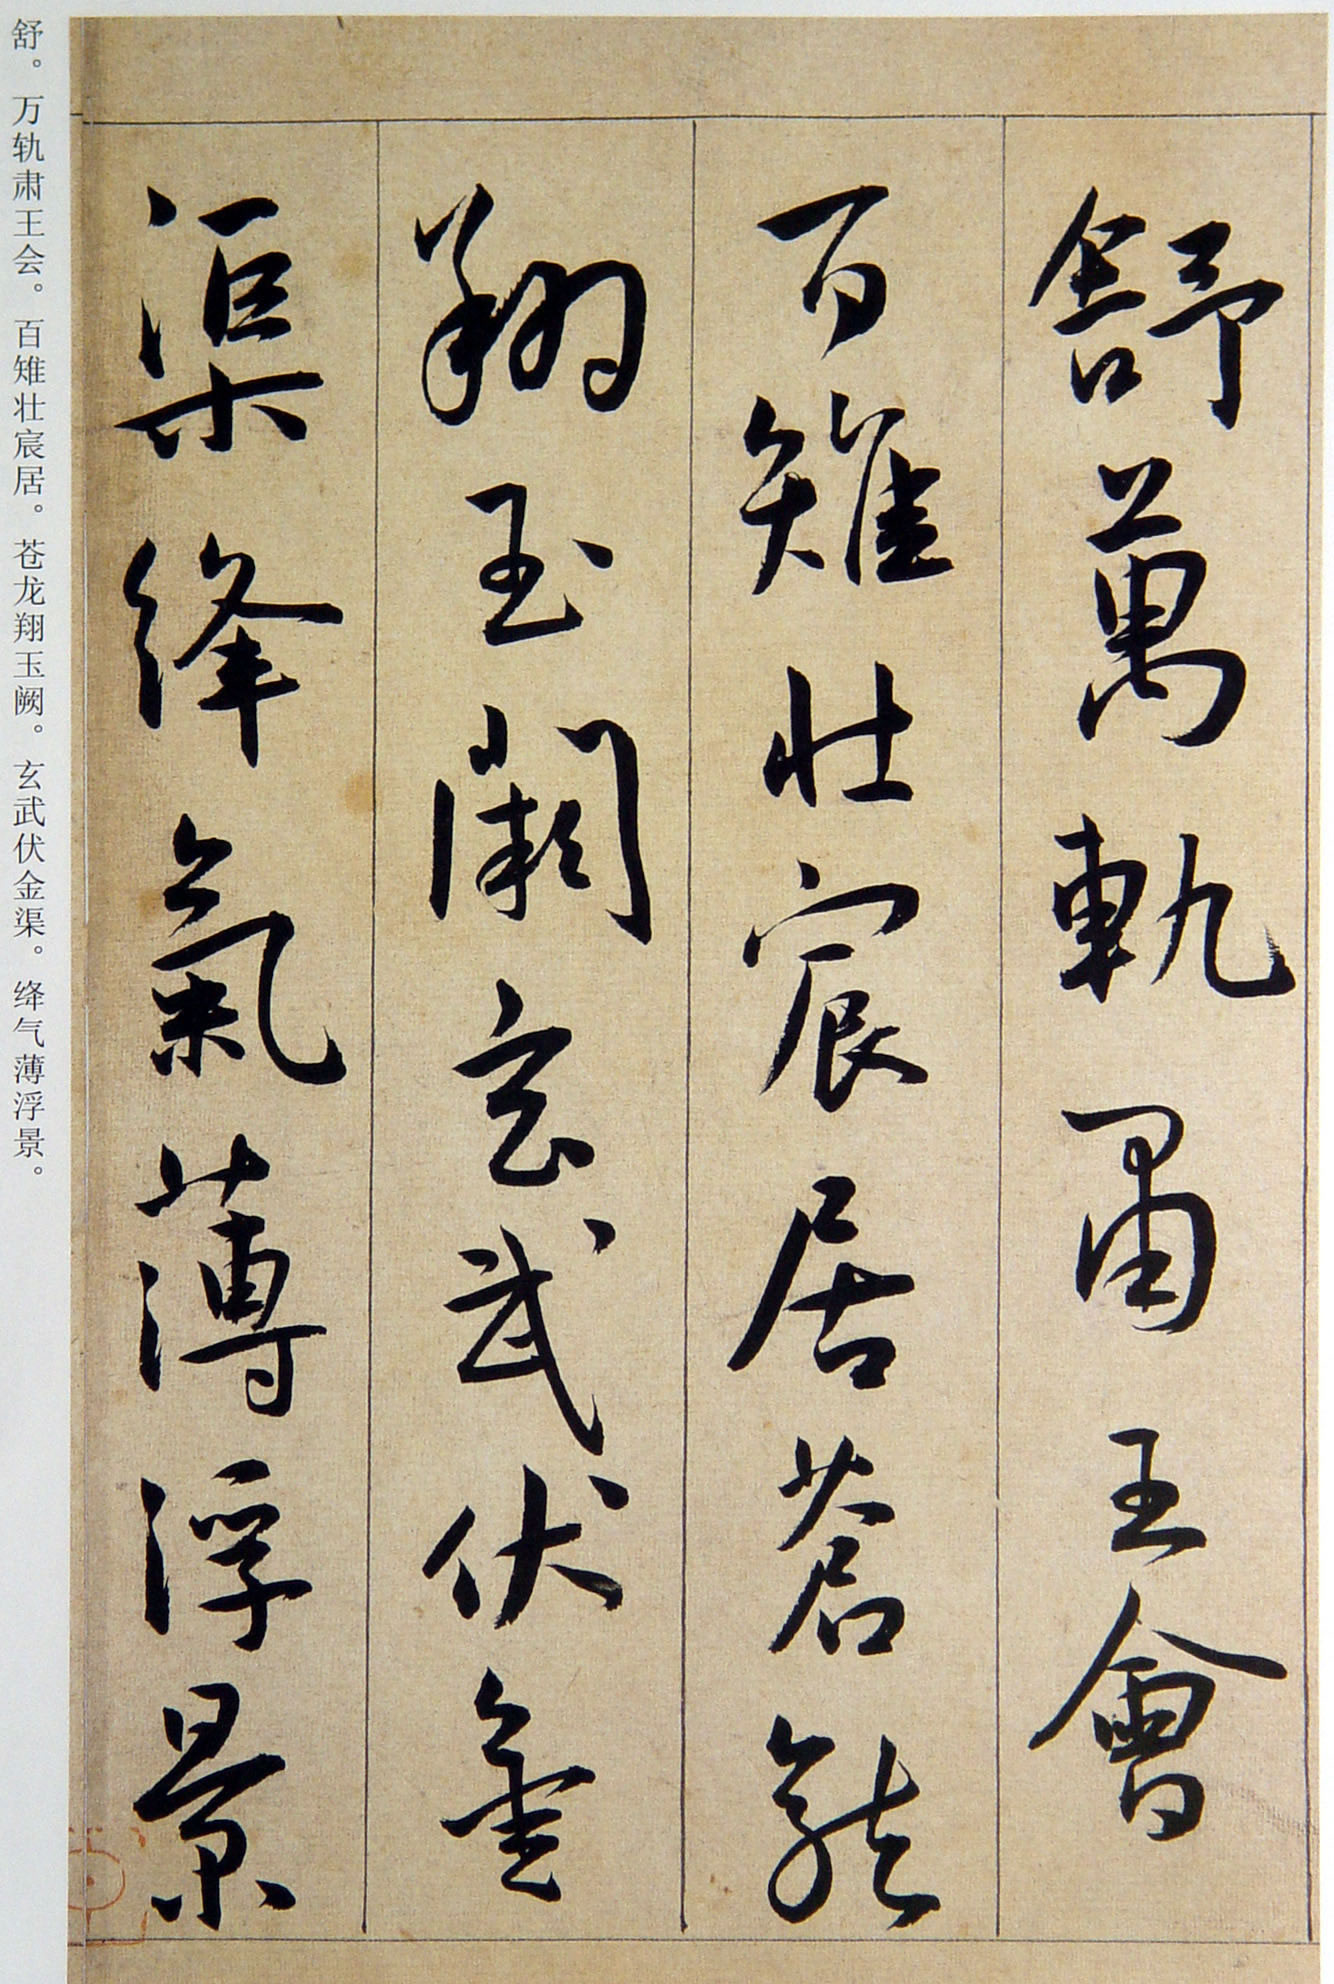 舒萬軌肅王會
百雉壯宸居蒼龍
翔玉闕玄武伏金
渠絳氣薄浮景
舒。万轨肃王会。百雉壮宸居。苍龙翔玉阙。玄武伏金渠。绛气薄浮景。